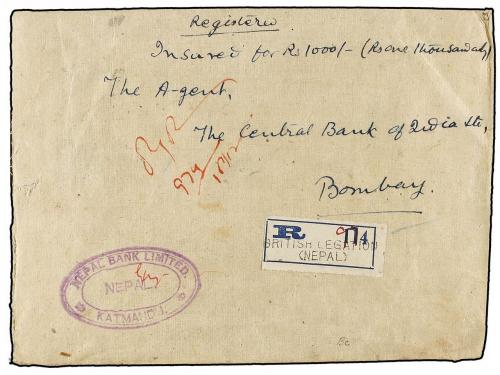 Registered
Insured for Rs 1000/- (Rs one thousand only)
The Agent,
The Central Bank of India Ltd.,
Bombay.
974
10/12
R 974
BRITISH LEGATION
(NEPAL)
NEPAL BANK LIMITED.
NEPAL
KATMANDU.